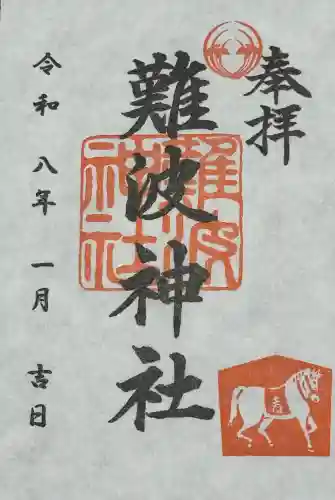 奉拝
難波神社
難波
神社
令和八年一月吉日